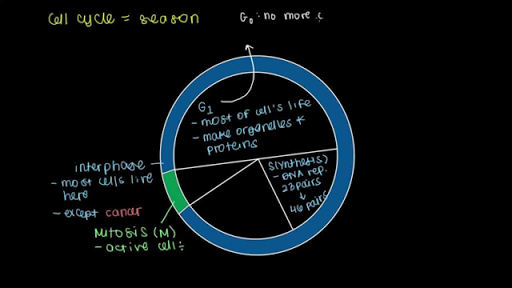 Cell cycle = season
G0: no more c
G1
- most of cell's life
- make organelles +
proteins
interphase
- most cells live
here
- except cancer
S(synthesis)
- DNA rep.
23 pairs
↓
46 pairs
Mitosis (M)
- active cell÷